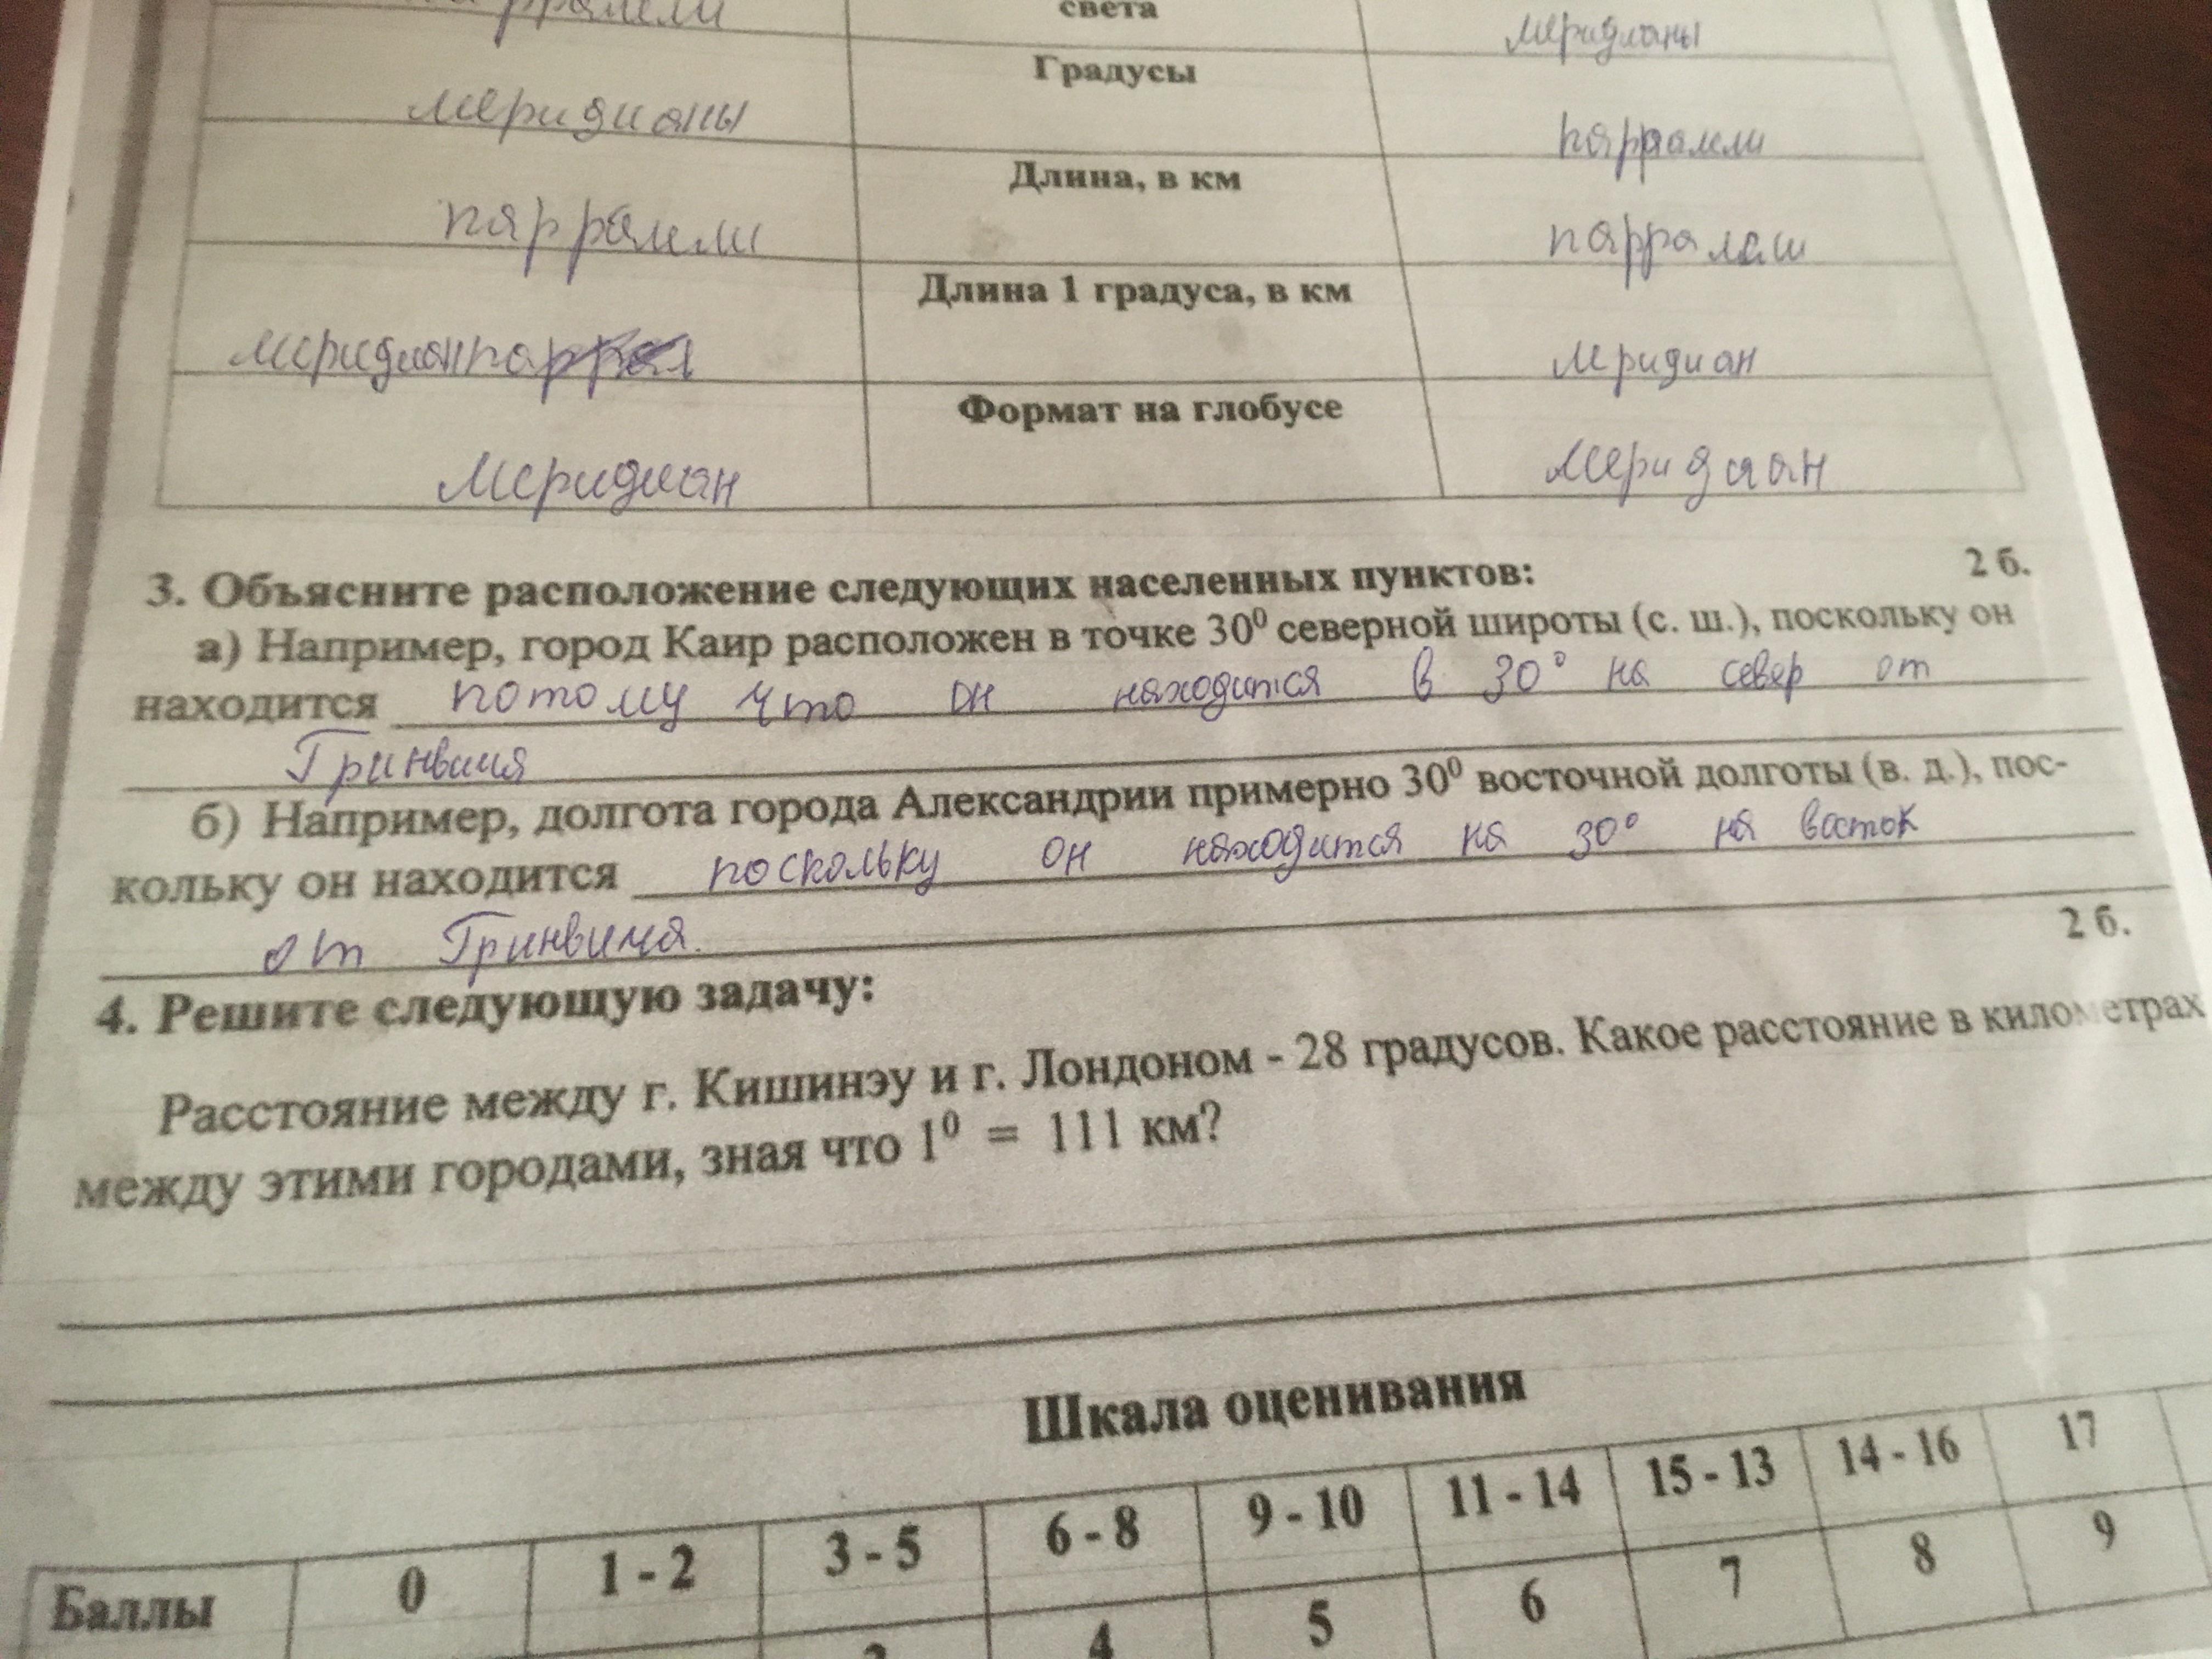 света
меридианы
Градусы
меридианы
паррамли
Длина, в км
паррамли
Длина 1 градуса, в км
меридиан
мридиан
Формат на глобусе
Меридиан
меридиан
3. Объясните расположение следующих населенных пунктов: 2 б.
а) Например, город Каир расположен в точке 30⁰ северной широты (с. ш.), поскольку он
находится потому что он находится в 30° на север от
Гринвича
б) Например, долгота города Александрии примерно 30⁰ восточной долготы (в. д.), пос-
кольку он находится поскольку он находится на 30° на восток
от Гринвича.
2 б.
4. Решите следующую задачу:
Расстояние между г. Кишинэу и г. Лондоном - 28 градусов. Какое расстояние в километрах
между этими городами, зная что 1⁰ = 111 км?
Шкала оценивания
Баллы 0 1 - 2 3 - 5 6 - 8 9 - 10 11 - 14 15 - 13 14 - 16 17
4 5 6 7 8 9